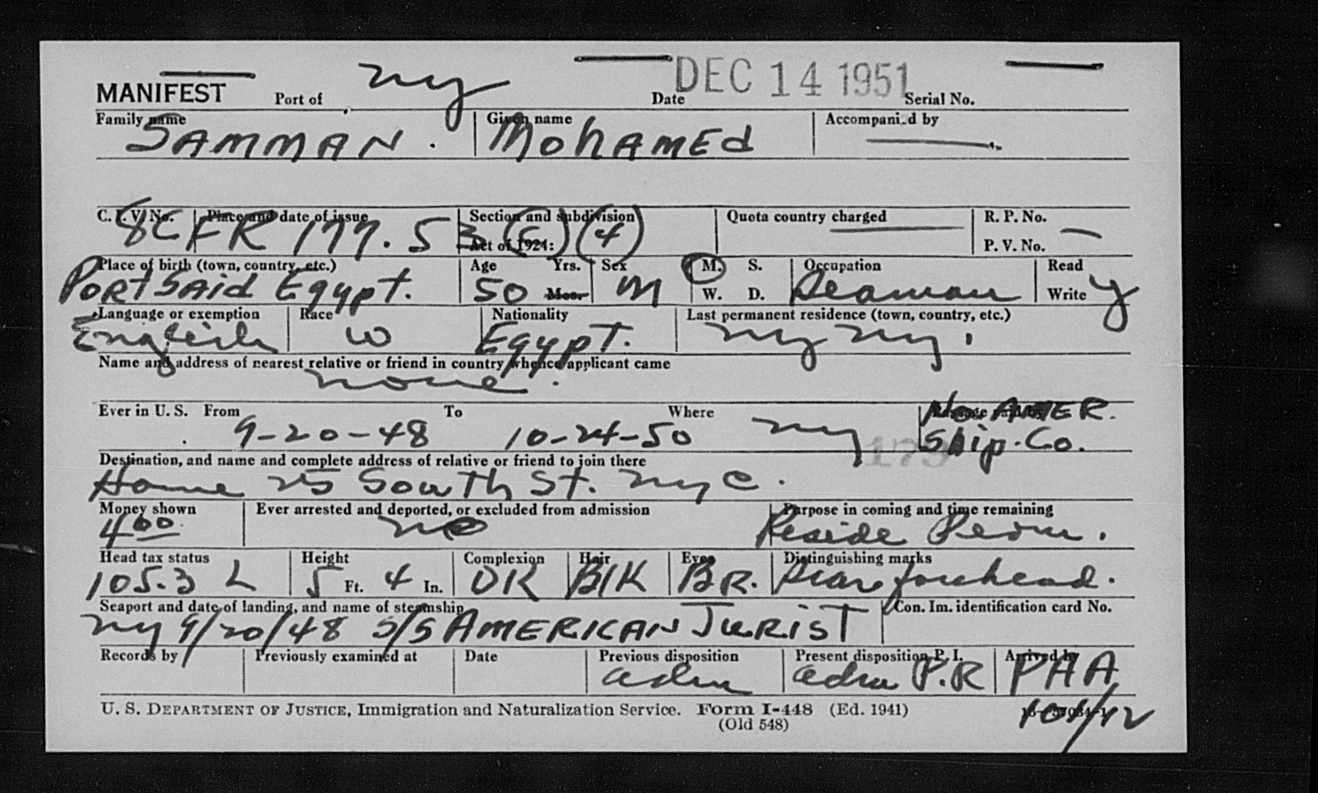 MANIFEST Port of NY Date DEC 14 1951 Serial No.
Family name SAMMAN. Given name MOHAMEd Accompanied by —
C. I. V. No. Place and date of issue 8CFR 177.53 (C)(4) Section and subdivision Act of 1924: Quota country charged — R. P. No. —
P. V. No.
Place of birth (town, country, etc.) PORT SAid Egypt. Age 50 Yrs. Mos. Sex M M. S. W. D. Occupation Seaman Read Write Y
Language or exemption English Race W Nationality Egypt. Last permanent residence (town, country, etc.) NY NY.
Name and address of nearest relative or friend in country whence applicant came
none.
Ever in U. S. From 9-20-48 To 10-24-50 Where NY No. AMER. Ship. Co.
Destination, and name and complete address of relative or friend to join there
Home 25 South St. NYC.
Money shown 400 Ever arrested and deported, or excluded from admission no Purpose in coming and time remaining Reside Perm.
Head tax status 105.3 L Height 5 Ft. 4 In. Complexion DK Hair BlK Eyes BR. Distinguishing marks Scar forehead.
Seaport and date of landing, and name of steamship Con. Im. identification card No.
NY 9/20/48 S/S AMERICAN JURIST
Records by Previously examined at Date Previous disposition adm Present disposition P. I. adm P.R Arrived by PAA
U. S. DEPARTMENT OF JUSTICE, Immigration and Naturalization Service. Form I-448 (Ed. 1941) 101/12
(Old 548)